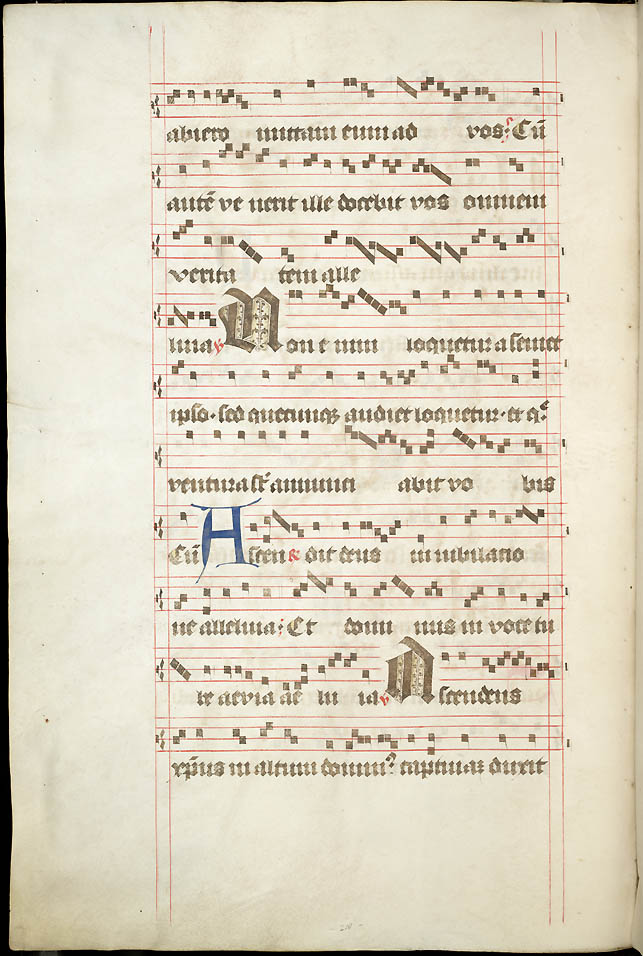 abiero mittam eum ad vos. Cū
autē ve nerit ille docebit vos omnem
verita tem alle
luia Non e nim loquetur a semet
ipso. sed quecumqꝫ audiet loquetur. et qͤ
ventura st̄ annunci abit vo bis
Cū Ascen dit deus in iubilatio
ne alleluia. Et domi nus in voce tu
be a evia ae u ia Ascendens
xp̄us in altum domin captiuā duxit